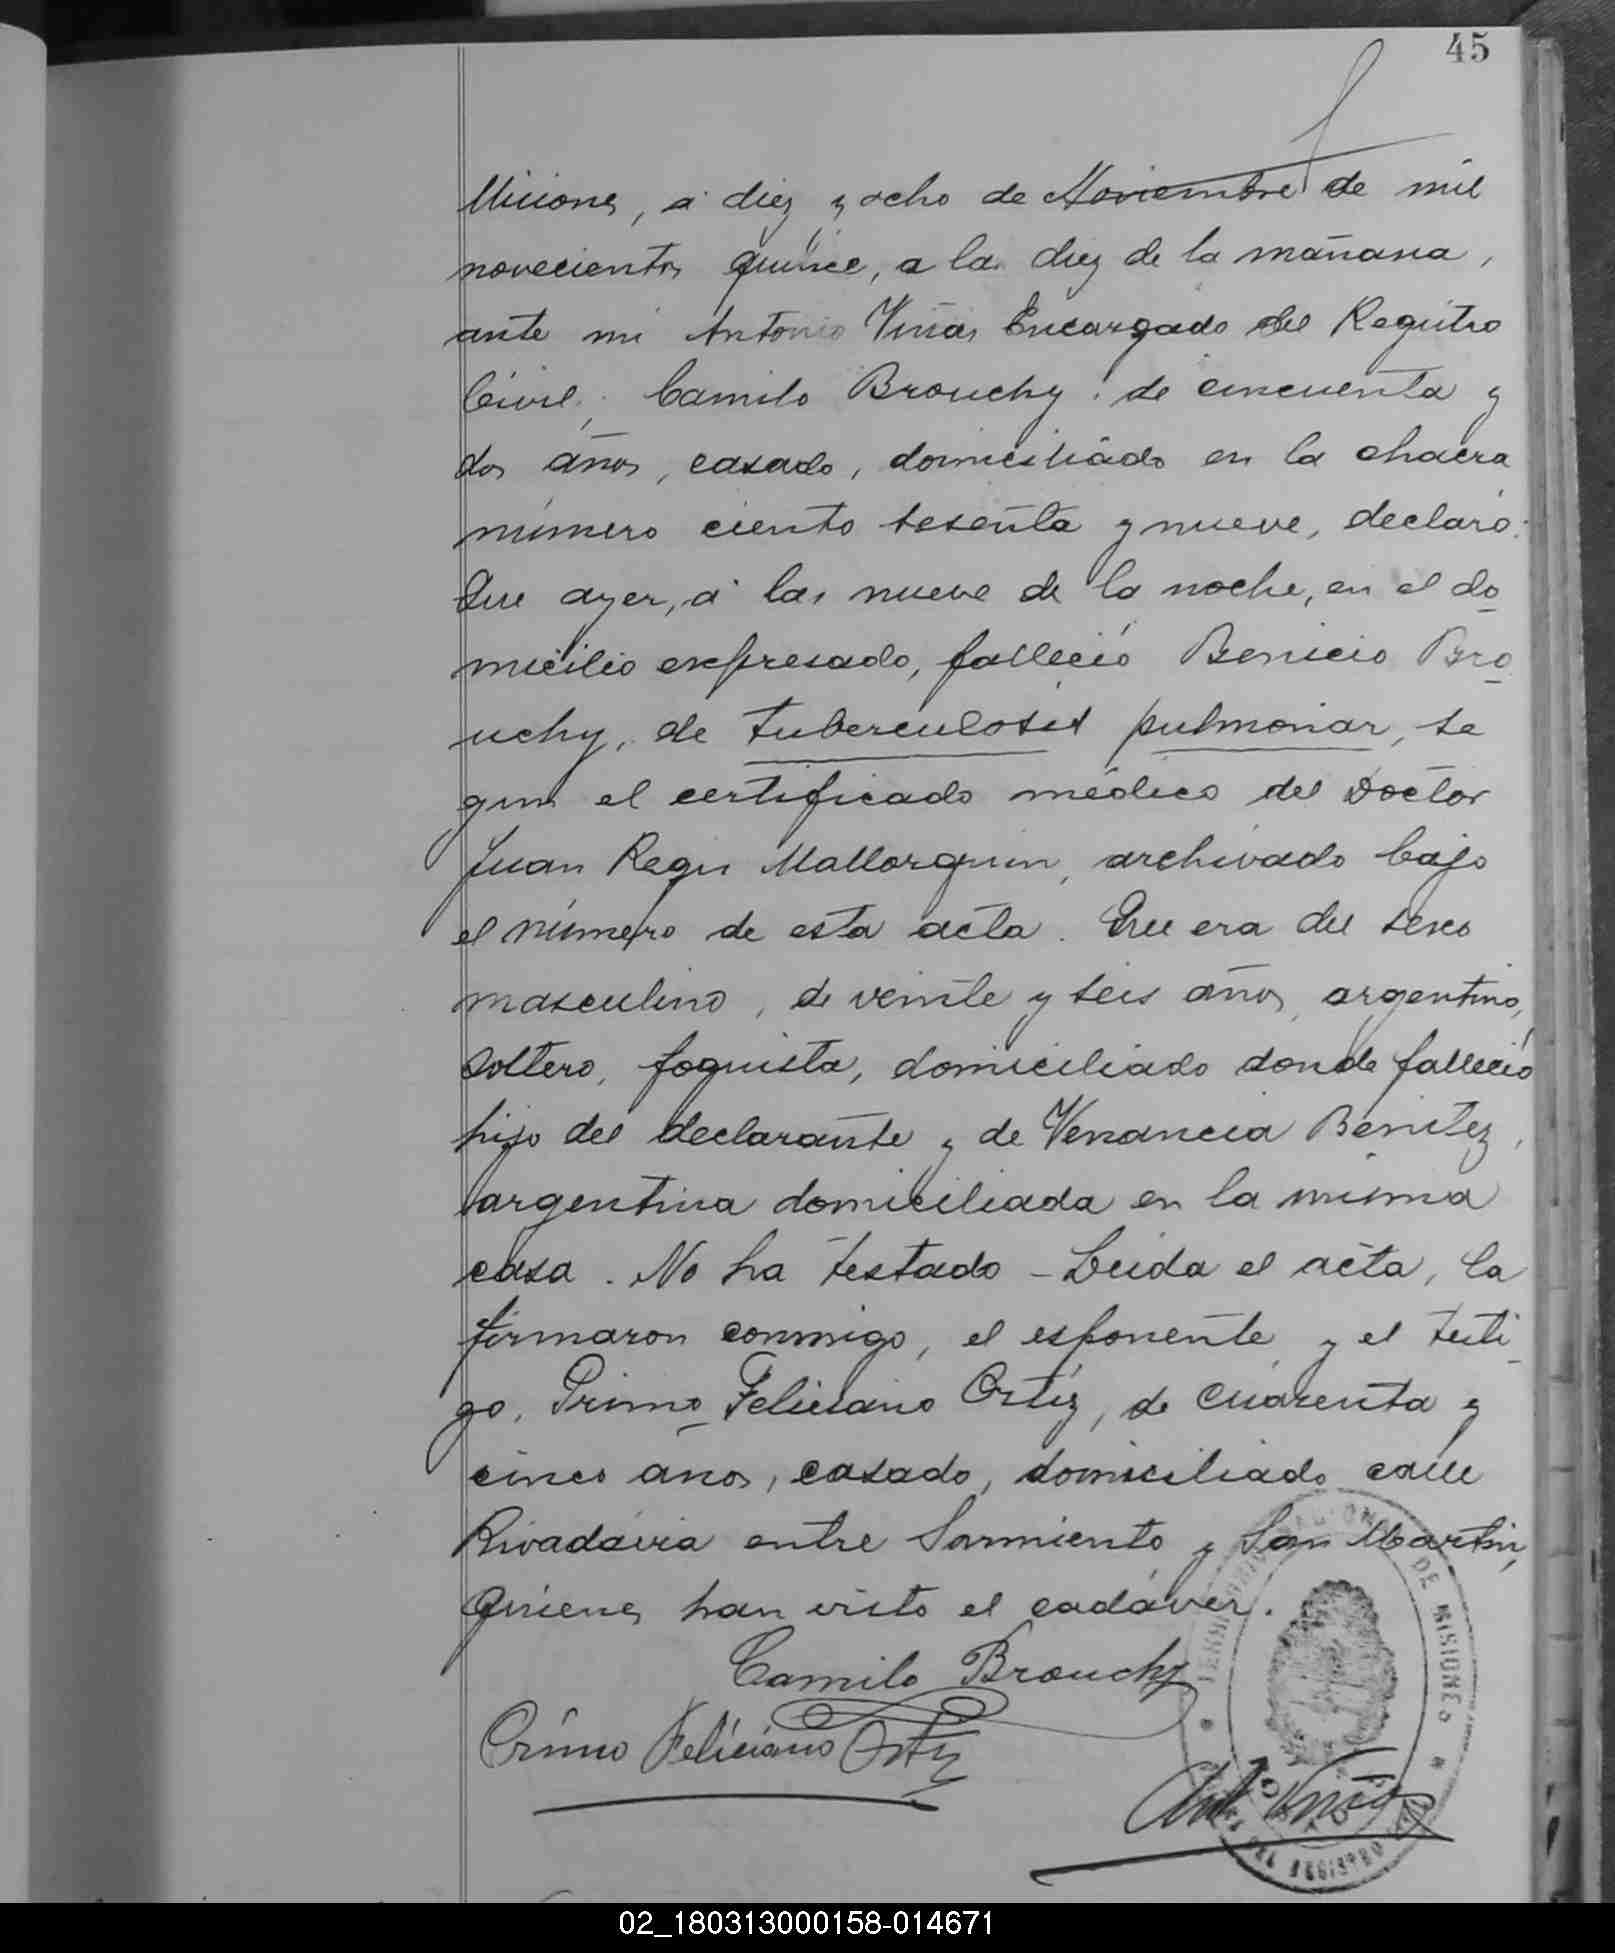 45
Misiones, á diez y ocho de Noviembre de mil
novecientos quince, a las diez de la mañana,
ante mi Antonio Viñas Encargado del Registro
Civil, Camilo Brouchy, de cincuenta y
dos años, casado, domiciliado en la chacra
número ciento sesenta y nueve, declaró:
Que ayer, á las nueve de la noche, en el do
micilio expresado, falleció Benicio Bro
uchy, de tuberculosis pulmonar, se
gun el certificado médico del Doctor
Juan Regis Mallorquin, archivado bajo
el número de esta acta. Que era del sexo
masculino, de veinte y seis años, argentino,
soltero, foguista, domiciliado donde falleció
hijo del declarante y de Venancia Benitez,
argentina domiciliada en la misma
casa. No ha testado – Leida el acta, la
firmaron conmigo, el esponente y el testi
go, Primo Feliciano Ortíz, de cuarenta y
cinco años, casado, domiciliado calle
Rivadavia entre Sarmiento y San Martin,
quienes han visto el cadáver.
Camilo Brouchy
Primo Feliciano Ortiz
Ant Viñas
DE MISIONES
DEL REGISTRO
02_180313000158-014671